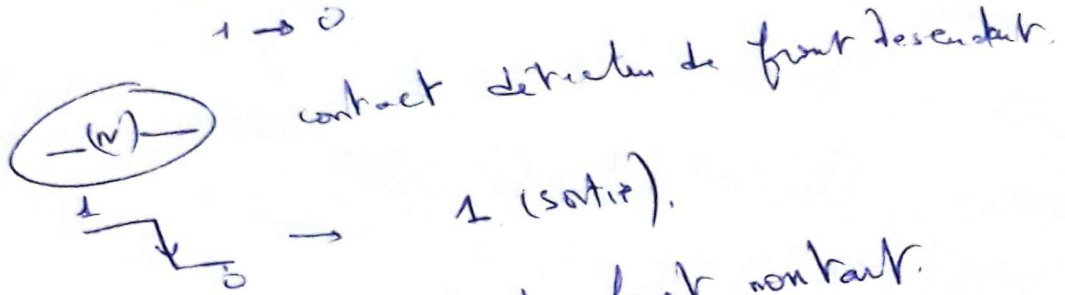 1 → 0
contact détecteur de front desendant.
—(N)—
1
0
→ 1 (sortie).
front montant.